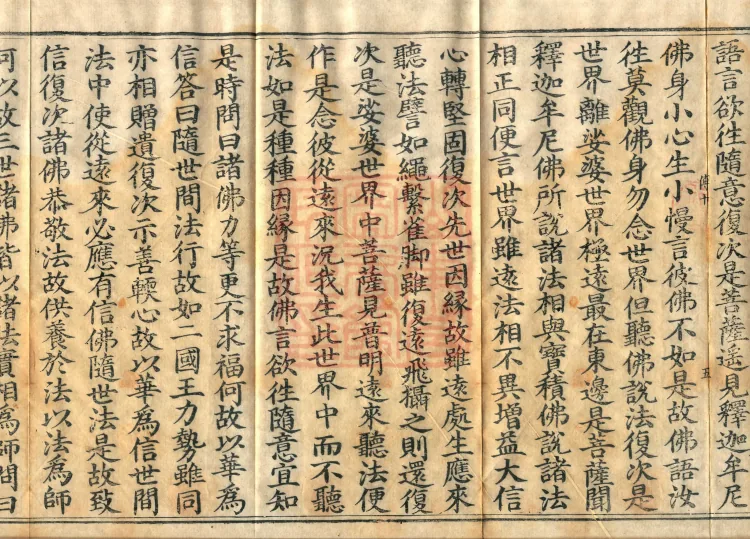 語言欲徃隨意復次是菩薩遥見釋迦牟尼
佛身小心生小慢言彼佛不如是故佛語汝
十 五
徃莫觀佛身勿念世界但聽佛說法復次是
世界離娑婆世界極遠最在東邊是菩薩聞
釋迦牟尼佛所說諸法相與寶積佛說諸法
相正同便言世界雖遠法相不異增益大信
心轉堅固復次先世因緣故雖遠處生應來
聽法譬如繩繫雀脚雖復遠飛攝之則還復
次是娑婆世界中菩薩見普明遠來聽法便
作是念彼從遠來況我生此世界中而不聽
法如是種種因緣是故佛言欲徃隨意宜知
是時問曰諸佛力等更不求福何故以華為
信答曰隨世間法行故如二國王力勢雖同
亦相贈遺復次示善輭心故以華為信世間
法中使從遠來必應有信佛隨世法是故致
信復次諸佛恭敬法故供養於法以法為師
何以故三世諸佛皆以諸法實相為師問曰